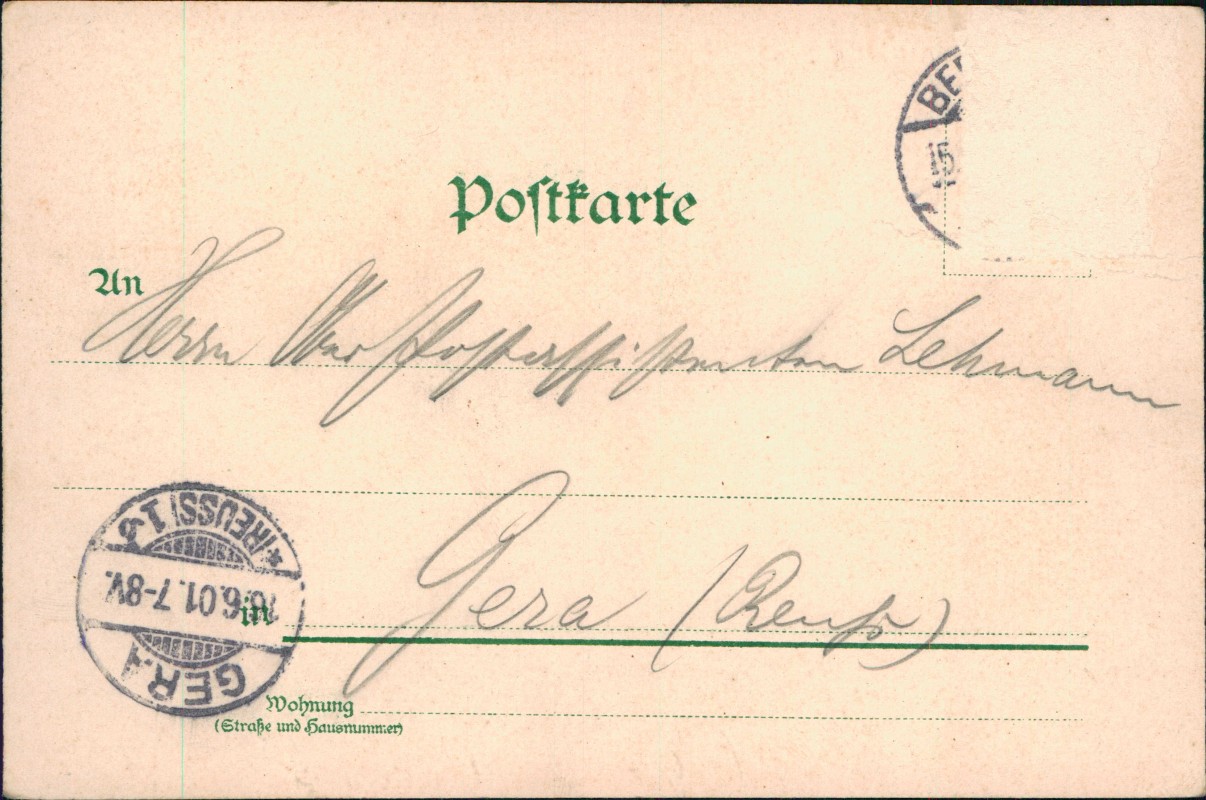 BER
15.
Postkarte
An
Herrn Ober Postassistenten Lehmann
*(REUSS) 1 g
16.6.01.7-8V.
GERA
in
Gera (Reuß)
Wohnung
(Straße und Hausnummer)